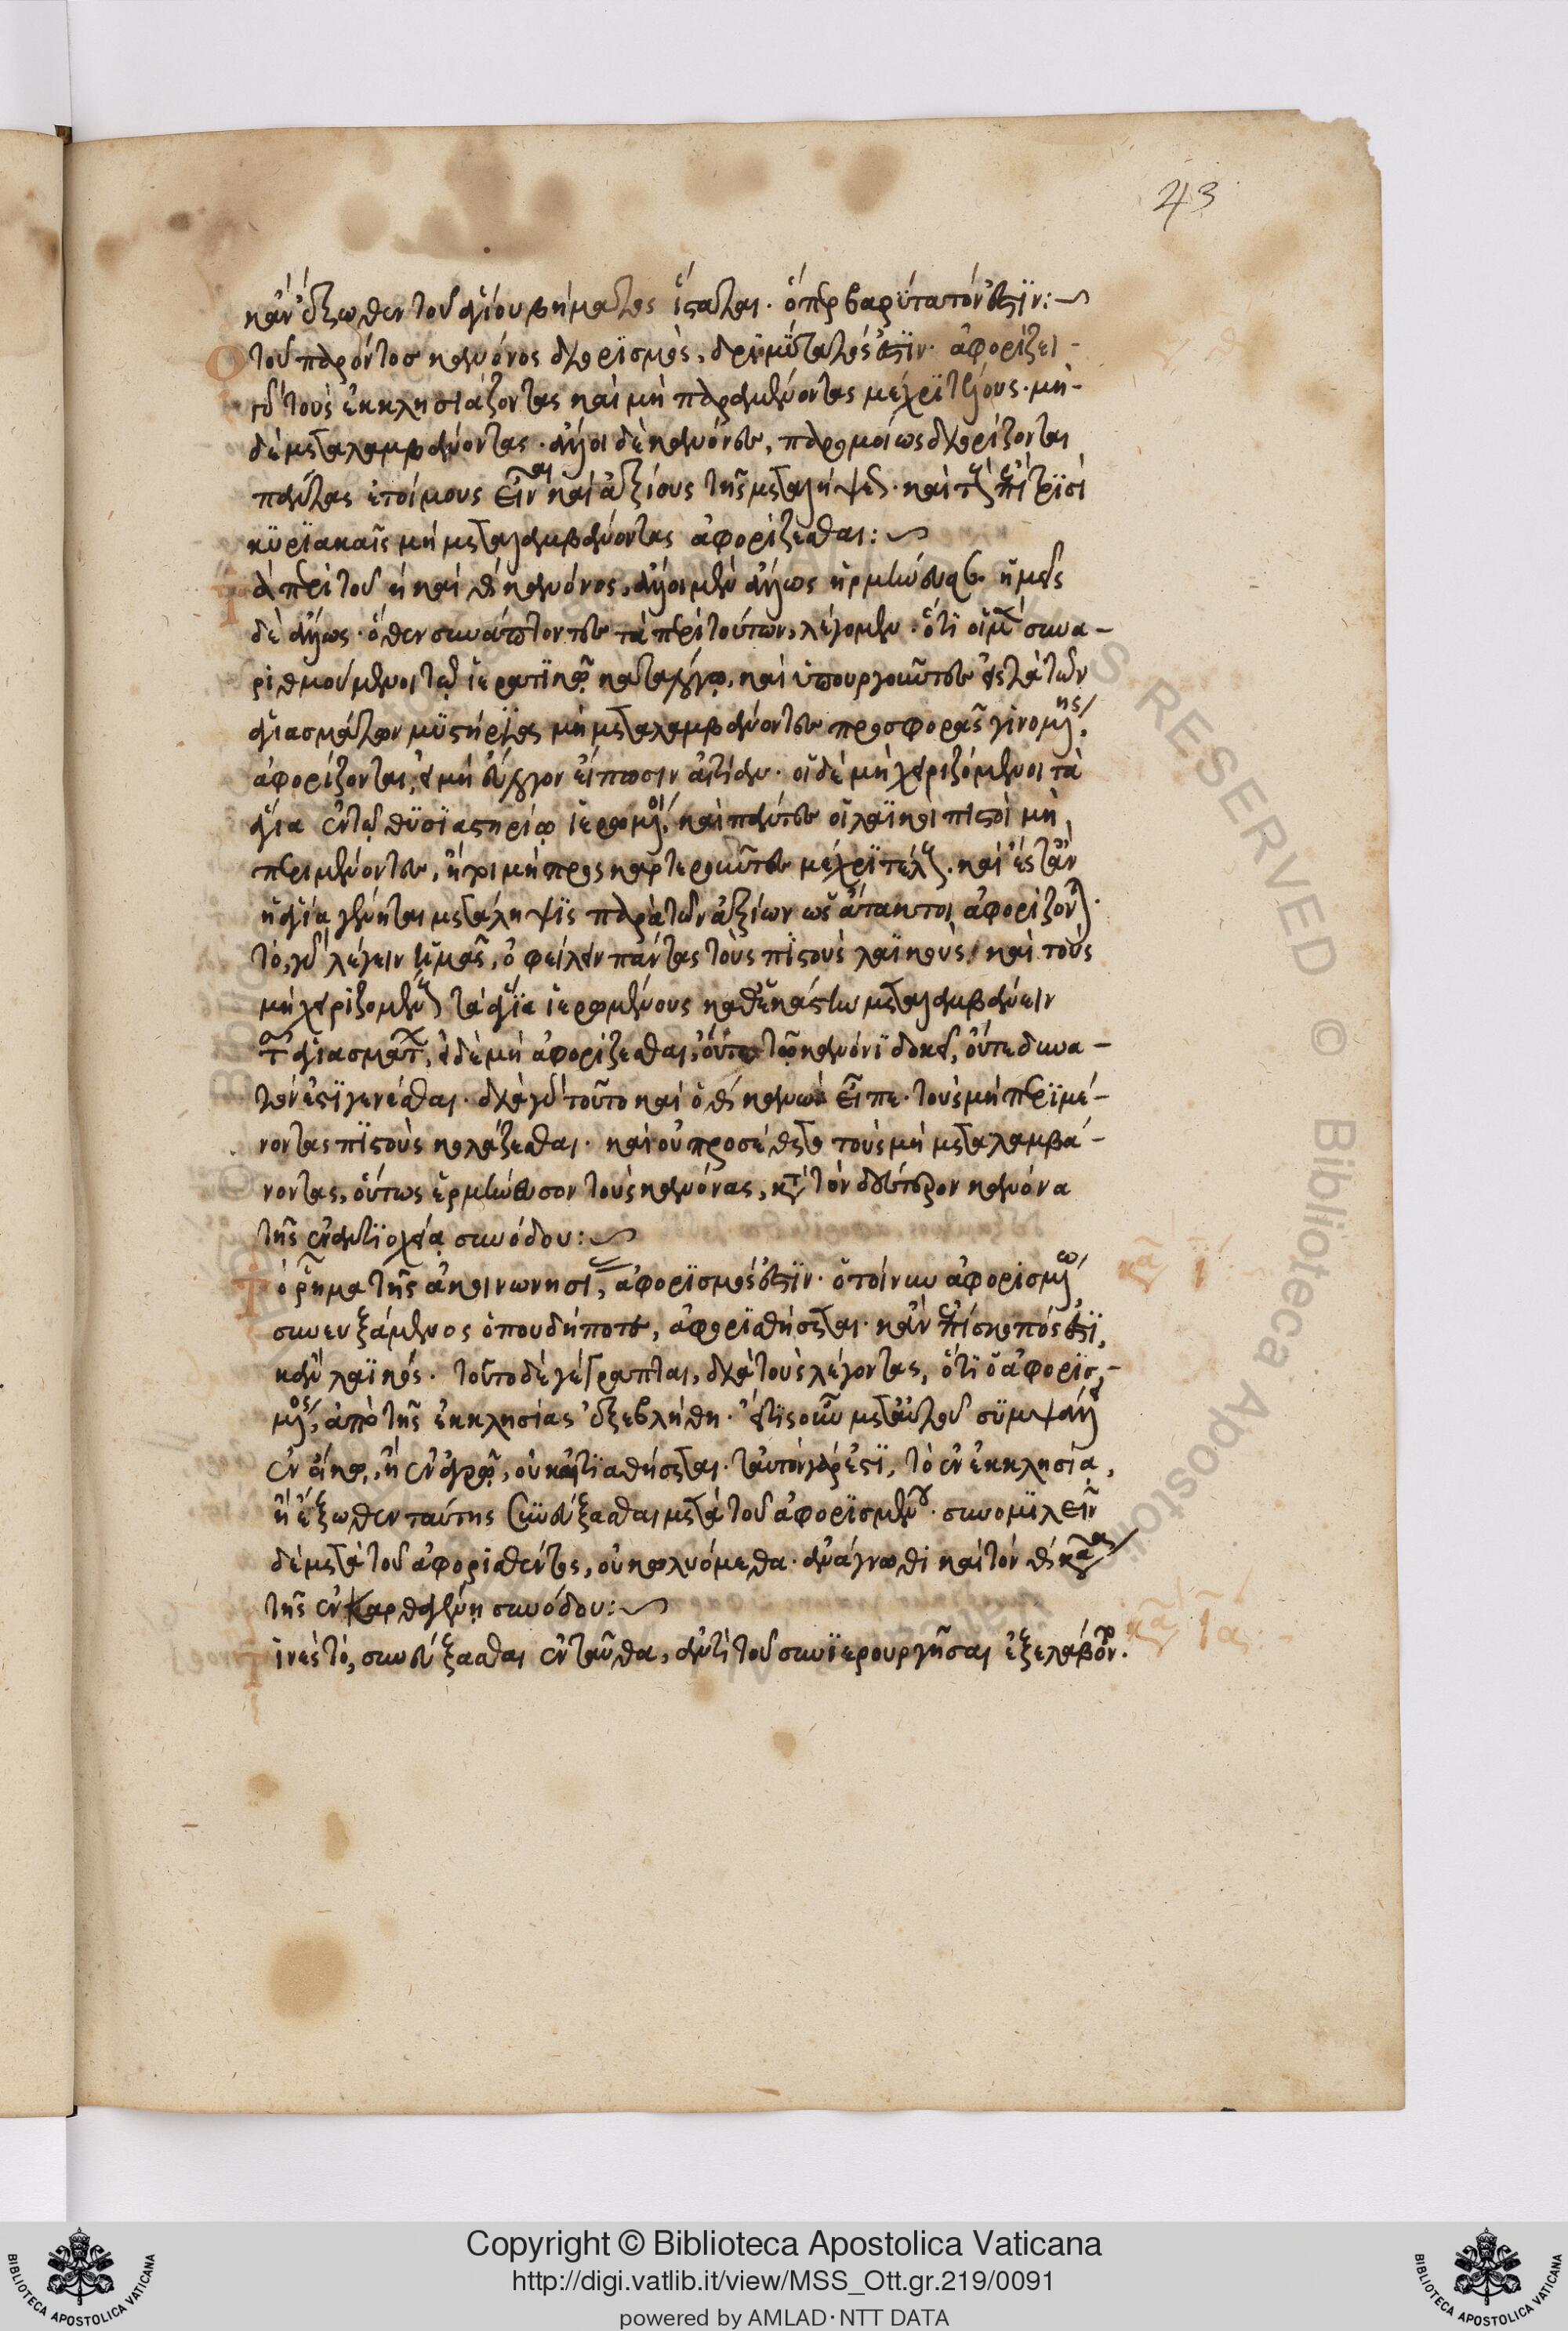 43
κἂν ἔξωθεν τοῦ ἁγίου βήματος ἵσταται· ὅπερ βαρύτατόν ἐστιν:~
Ὁ τοῦ παρόντος κανόνος διορισμὸς, δριμύτατός ἐστιν· ἀφορίζει
γὰρ τοὺς ἐκκλησιάζοντας καὶ μὴ παραμένοντας μέχρι τέλους· μη-
δὲ μεταλαμβάνοντας· ἄλλοι δὲ κανόνες, παρομοίως διορίζονται
πάντας ἑτοίμους εἶναι καὶ ἀξίους τῆς μεταλήψεως· καὶ τοὺς ἐπὶ τρισὶ
κυριακαῖς μὴ μεταλαμβάνοντας ἀφορίζεσθαι:~
Τὰ περὶ τοῦ η καὶ θ κανόνος, ἄλλοι μὲν ἄλλως ἡρμήνευσαν· ἡμεῖς
δὲ ἄλλως· ὅθεν συνάπτοντες τὰ περὶ τούτων, λέγομεν· ὅτι οἱ μὲν συνα-
ριθμούμενοι τῷ ἱερατικῷ καταλόγῳ, καὶ ὑπουργοῦντες εἰς τὰ τῶν
ἁγιασμάτων μυστήρια μὴ μεταλαμβάνοντες προσφορᾶς γινομένης,
ἀφορίζονται, εἰ μὴ εὔλογον εἴπωσιν αἰτίαν· οἱ δὲ μὴ χειριζόμενοι τὰ
ἅγια ἐν τῷ θυσιαστηρίῳ ἱερωμένοι, καὶ πάντες οἱ λαϊκοὶ πιστοὶ μὴ
περιμένοντες, ἤγουν μὴ προσκαρτεροῦντες μέχρι τέλους· καὶ ἔστ' ἂν
ἡ ἁγία γένηται μετάληψις παρὰ τῶν ἀξίων ὡς ἄτακτοι ἀφορίζονται·
τὸ, γὰρ λέγειν ἡμᾶς, ὀφείλειν πάντας τοὺς πιστοὺς λαϊκοὺς, καὶ τοὺς
μὴ χειριζομένους τὰ ἅγια ἱερωμένους καθ' ἑκάστην μεταλαμβάνειν
τῶν ἁγιασμάτων, εἰ δὲ μὴ ἀφορίζεσθαι, οὔτε τῷ κανόνι δοκεῖ, οὔτε δυνα-
τόν ἐστι γενέσθαι· διὰ γὰρ τοῦτο καὶ ὁ θ κανὼν εἶπε· τοὺς μὴ περιμέ-
νοντας πιστοὺς κολάζεσθαι· καὶ οὐ προσέθετο τοὺς μὴ μεταλαμβά-
νοντας, οὕτως ἑρμήνευσον τοὺς κανόνας, κατὰ τὸν δεύτερον κανόνα
τῆς ἐν ἀντιοχείᾳ συνόδου:~
Τὸ ῥῆμα τῆς ἀκοινωνησίας, ἀφορισμός ἐστιν· ὁ τοίνυν ἀφορισμένῳ
συνευξάμενος ὁπουδήποτε, ἀφορισθήσεται· κἂν ἐπίσκοπός ἐστι,
κἂν λαϊκός· τοῦτο δὲ γέγραπται, διὰ τοὺς λέγοντας, ὅτι ὁ ἀφορισ-
μένος, ἀπὸ τῆς ἐκκλησίας ἐξεβλήθη· εἴ τις οὖν μετ' αὐτοῦ συμψάλλει
ἐν οἴκῳ, ἢ ἐν ἀγρῷ, οὐκ αἰτιαθήσεται· ταυτὸν γάρ ἐστι, τὸ ἐν ἐκκλησίᾳ,
ἢ ἔξωθεν ταύτης συνεύξασθαι μετὰ τοῦ ἀφορισμένου· συνομιλεῖν
δὲ μετὰ τοῦ ἀφορισθέντος, οὐ κωλυόμεθα· ἀνάγνωθι καὶ τὸν θ κανόνα
τῆς ἐν καρθαγένῃ συνόδου:~
Τινὲς τὸ, συνεύξασθαι ἐνταῦθα, ἀντὶ τοῦ συνιερουργῆσαι ἐξελάβοντο.
Copyright © Biblioteca Apostolica Vaticana
http://digi.vatlib.it/view/MSS_Ott.gr.219/0091
powered by AMLAD·NTT DATA